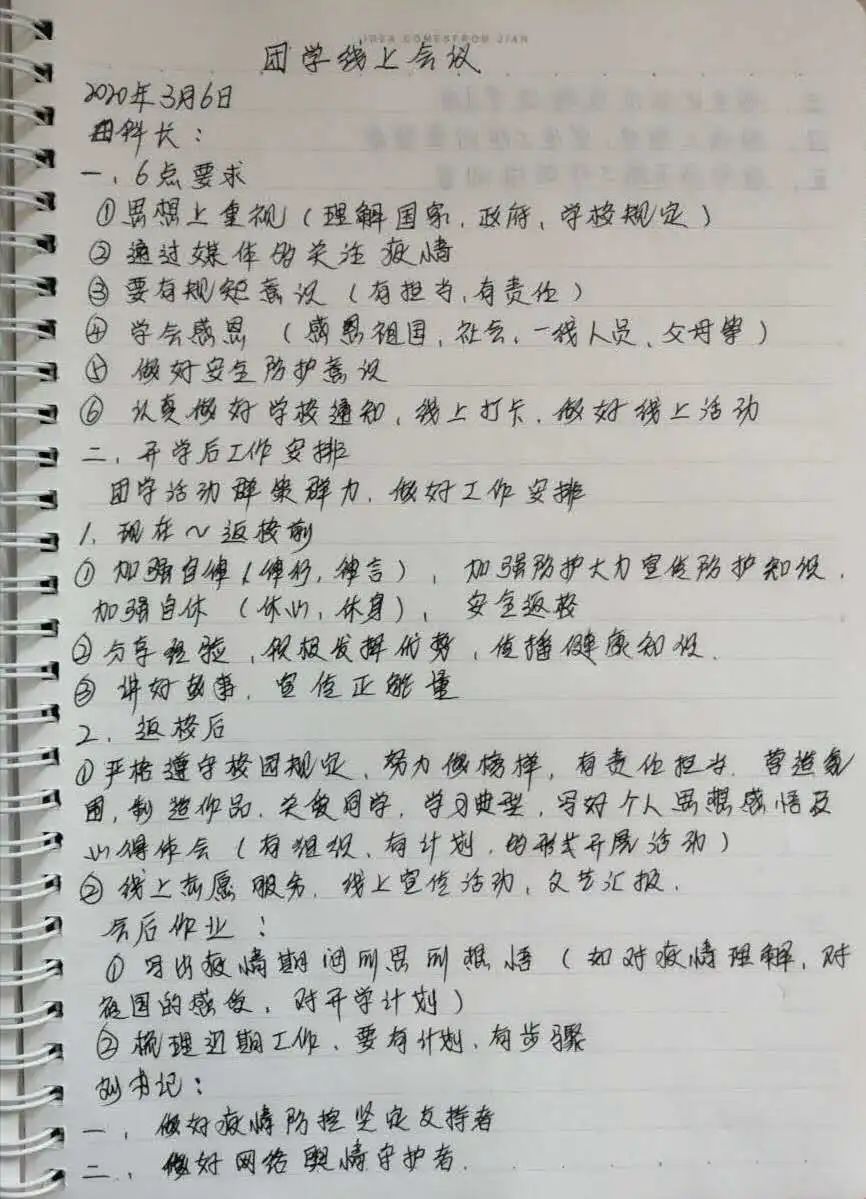 IDEA COMES FROM JIAN
团学线上会议
2020年3月6日
科长：
一、6点要求
①思想上重视（理解国家、政府、学校规定）
②通过媒体的关注疫情
③要有规矩意识（有担当,有责任）
④学会感恩（感恩祖国、社会、一线人员、父母等）
⑤做好安全防护意识
⑥认真做好学校通知、线上打卡、做好线上活动
二、开学后工作安排
团学活动群策群力、做好工作安排
1、现在～返校前
①加强自律（律行,律言）、加强防护大力宣传防护知识、
加强自休（休心,休身）、安全返校
②分享经验、积极发挥优势、传播健康知识、
③讲好故事、宣传正能量
2、返校后
①严格遵守校园规定、努力做榜样、有责任担当、营造氛
围,制造作品、关爱同学、学习典型、写好个人思想感悟及
心得体会（有组织、有计划、的形式开展活动）
②线上志愿服务、线上宣传活动、文艺汇报、
会后作业：
①写出疫情期间所思所想悟（如对疫情理解、对
祖国的感受、对开学计划）
②梳理近期工作、要有计划、有步骤
书记：
一、做好疫情防控坚定支持者
二、做好网络舆情守护者、